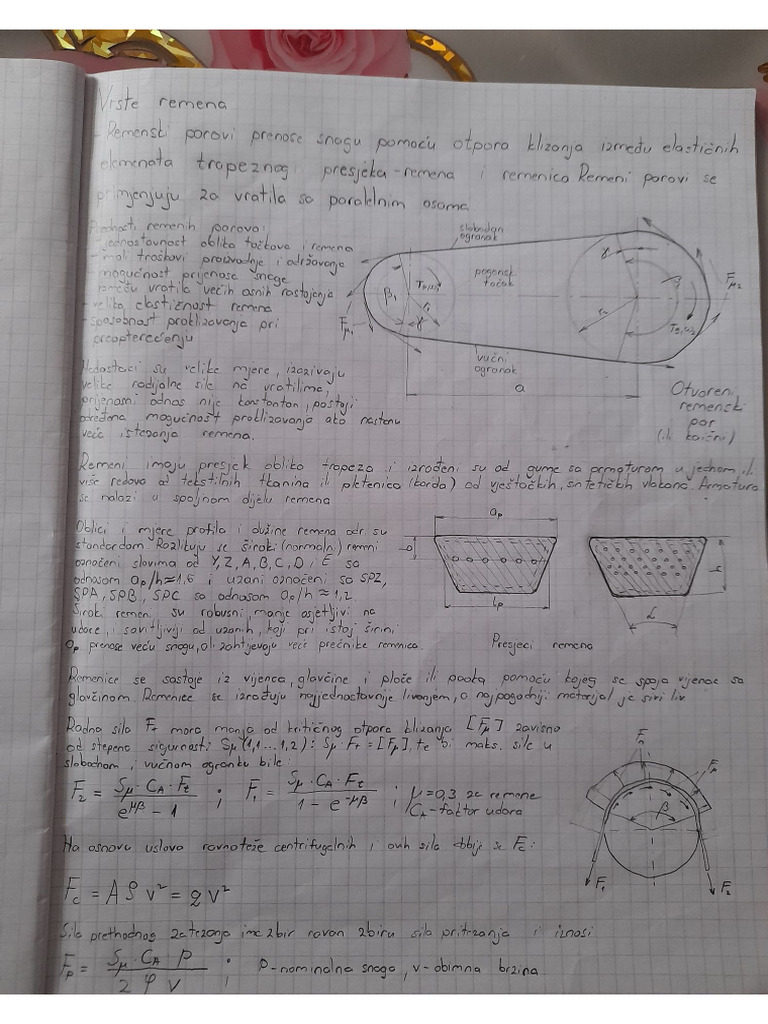 Vrste remena
- Remenski parovi prenose snagu pomoću otpora klizanja između elastičnih
elemenata trapeznog presjeka-remena i remenica Remeni parovi se
primjenjuju za vratila sa paralelnim osama.
Prednosti remenih parova:
- jednostavnost oblika točkova i remena
- mali troškovi proizvodnje i održavanja
- mogućnost prijenosa snage
između vratila većih osnih rastojanja
- velika elastičnost remena
- sposobnost proklizavanja pri
preopterećenju
slobodan
ogranak
pogonski
točak
vučni
ogranak
β₁
r₁
γ
γ
β
a
Fμ₁
Fμ₂
Nedostaci su velike mjere, izazivaju
velike radijalne sile na vratilima,
prijenosni odnos nije konstantan, postoji
određena mogućnost proklizavanja ako nastane
veće istezanja remena.
Otvoreni
remenski
par
(ili kaišni)
Remeni imaju presjek oblika trapeza i izrađeni su od gume sa armaturom u jednom ili
više redova od tekstilnih tkanina ili pletenica (korda) od vještačkih, sintetičkih vlakana. Armatura
se nalazi u spoljnom dijelu remena
Oblici i mjere profila i dužine remena odr. su
standardom. Razlikuju se široki (normaln.) remeni
označeni slovima od Y, Z, A, B, C, D i E sa
odnosom ap/h≈1,6 i uzani označeni sa SPZ,
SPA, SPB, SPC sa odnosom ap/h ≈ 1,2.
Široki remen. su robusni, manje osjetljivi na
udare, i savitljiviji od uzanih, koji pri istoj širini
ap prenose veću snagu, ali zahtjevaju veće prečnike remenica.
ap
b
lp
h
α
Presjeci remena
Remenice se sastoje iz vijenca, glavčine i ploče ili paoka pomoću kojeg se spaja vijenac sa
glavčinom. Remenice se izrađuju najjednostavnije livenjem, a najpogodniji materijal je sivi liv
Radna sila Ft mora manja od kritičnog otpora klizanja [Fμ] zavisno
od stepena sigurnosti Sμ (1,1...1,2): Sμ·Ft = [Fμ], te bi maks. sile u
slobodnom i vučnom ogranku bile:
F₂ = Sμ·CA·Ft / e^μβ - 1 ; F₁ = Sμ·CA·Ft / 1 - e^-μβ ; μ=0,3 za remene
CA-faktor udara
Fn
Fμ
β
F₁
F₂
Na osnovu uslova ravnoteže centrifugalnih i ovih sila dobije se Fc:
Fc = Aρv² = qv²
Sila prethodnog zatezanja ima zbir ravan zbiru sila pritezanja i iznosi
Fp = Sμ·CA P / 2 φ v ; P-nominalna snaga, v-obimna brzina